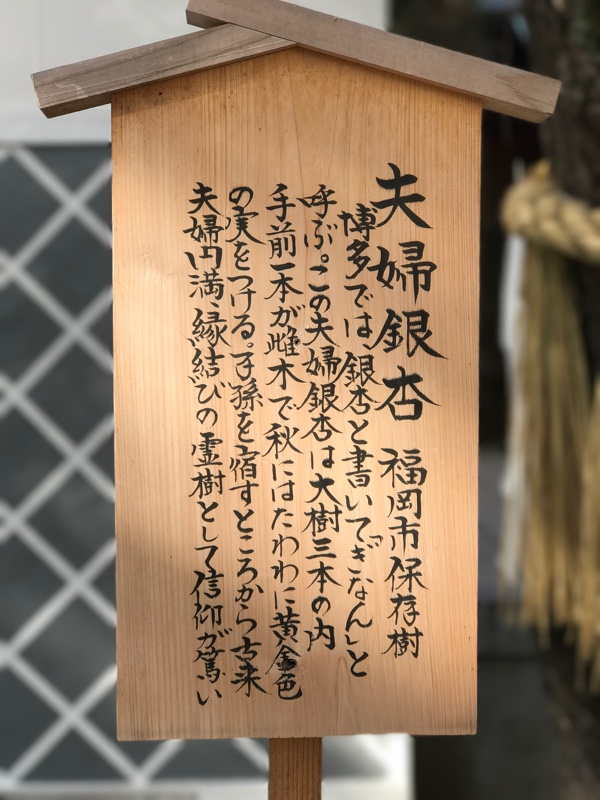 夫婦銀杏 福岡市保存樹
博多では銀杏と書いて「ぎなん」と
呼ぶ。この夫婦銀杏は大樹三本の内
手前一本が雌木で秋にはたわわに黄金色
の実をつける。子孫を宿すところから古来
夫婦円満、縁結びの霊樹として信仰が篤い